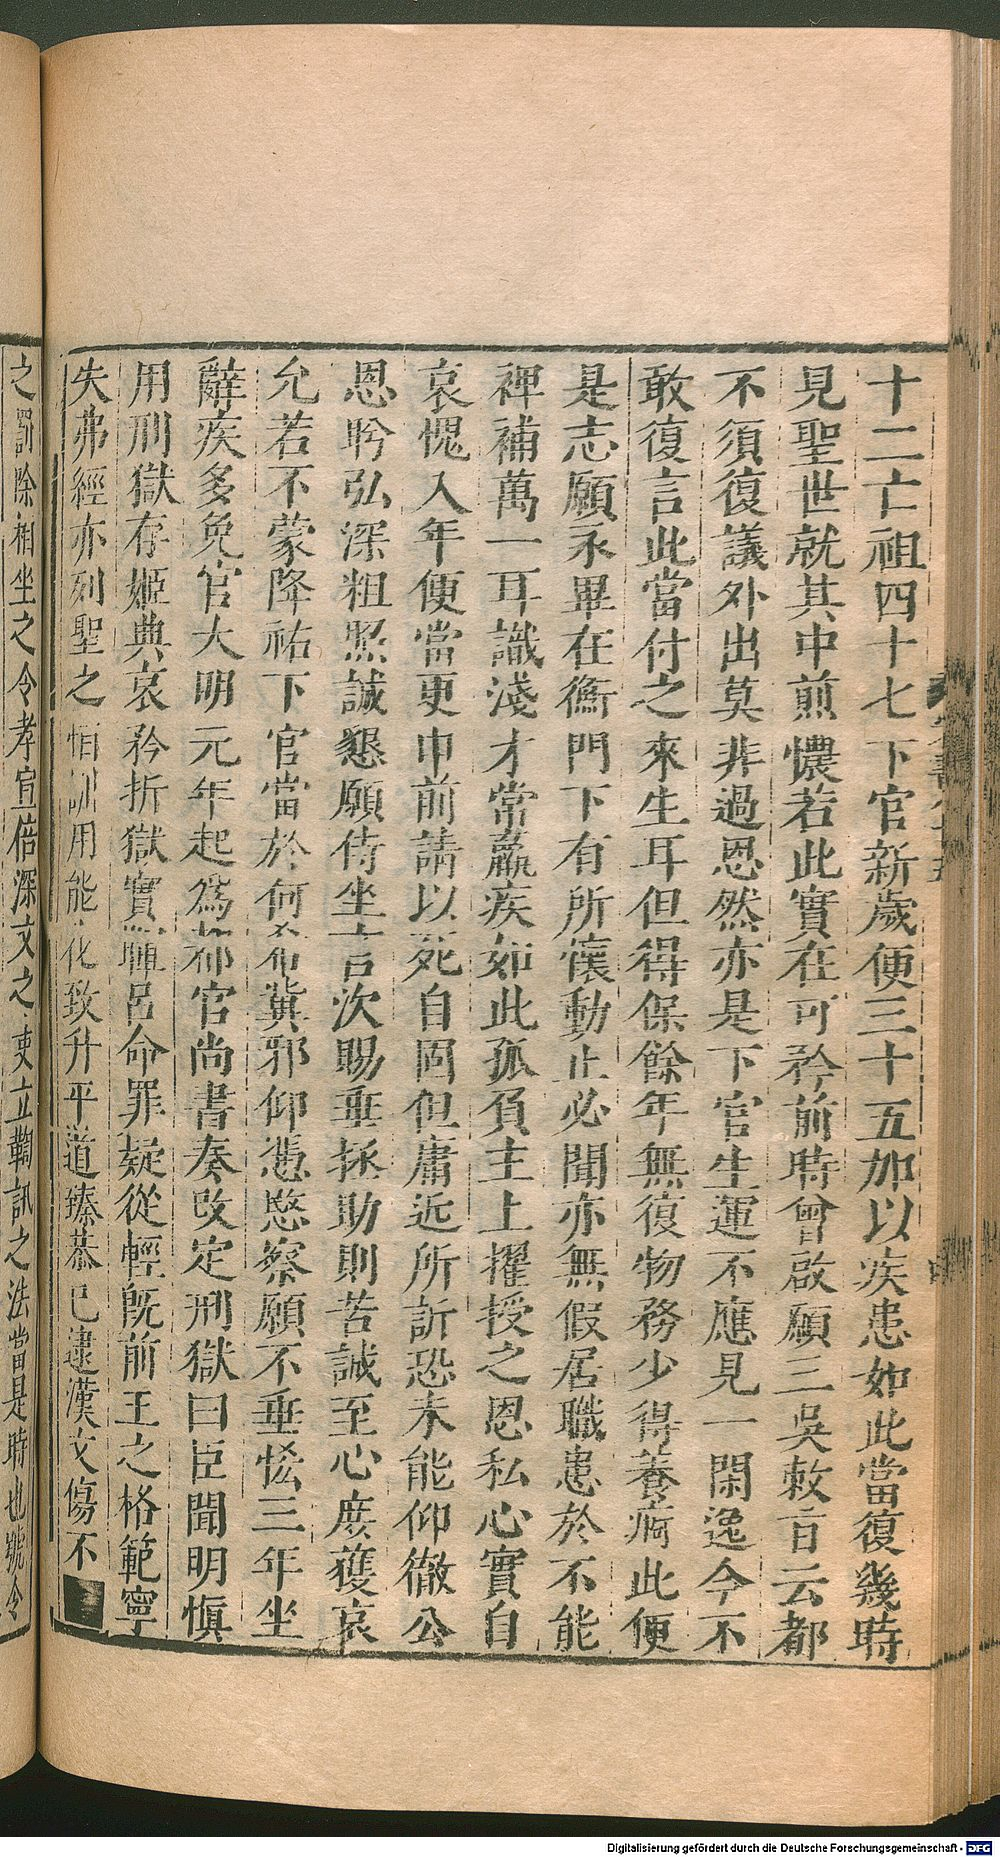 十二亡祖四十七下官新歲便三十五加以疾患如此當復幾時
見聖世就其中煎憹若此實在可矜前時曾啟願三吳敕旨云都
不須復議外出莫非過恩然亦是下官生運不應見一閑逸今不
敢復言此當付之來生耳但得保餘年無復物務少得養痾此便
是志願永畢在衡門下有所懷動止必聞亦無假居職患於不能
裨補萬一耳識淺才常羸疾如此孤負主上擢授之恩私心實自
哀愧入年便當更申前請以死自固但庸近所訴恐未能仰徹公
恩盻弘深粗照誠懇願侍坐言次賜垂拯助則苦誠至心庶獲哀
允若不蒙降祐下官當於何希冀邪仰憑愍察願不垂恡三年坐
辭疾多免官大明元年起爲都官尚書奏改定刑獄曰臣聞明愼
用刑獄存姬典哀矜折獄實暉呂命罪疑從輕旣前王之格範寧
失弗經亦列聖之恒訓用能化致升平道臻恭已逮漢文傷不
之罰除相坐之令孝宣倍深文之吏立鞫訊之法當是時也號令
Digitalisierung gefördert durch die Deutsche Forschungsgemeinschaft - DFG